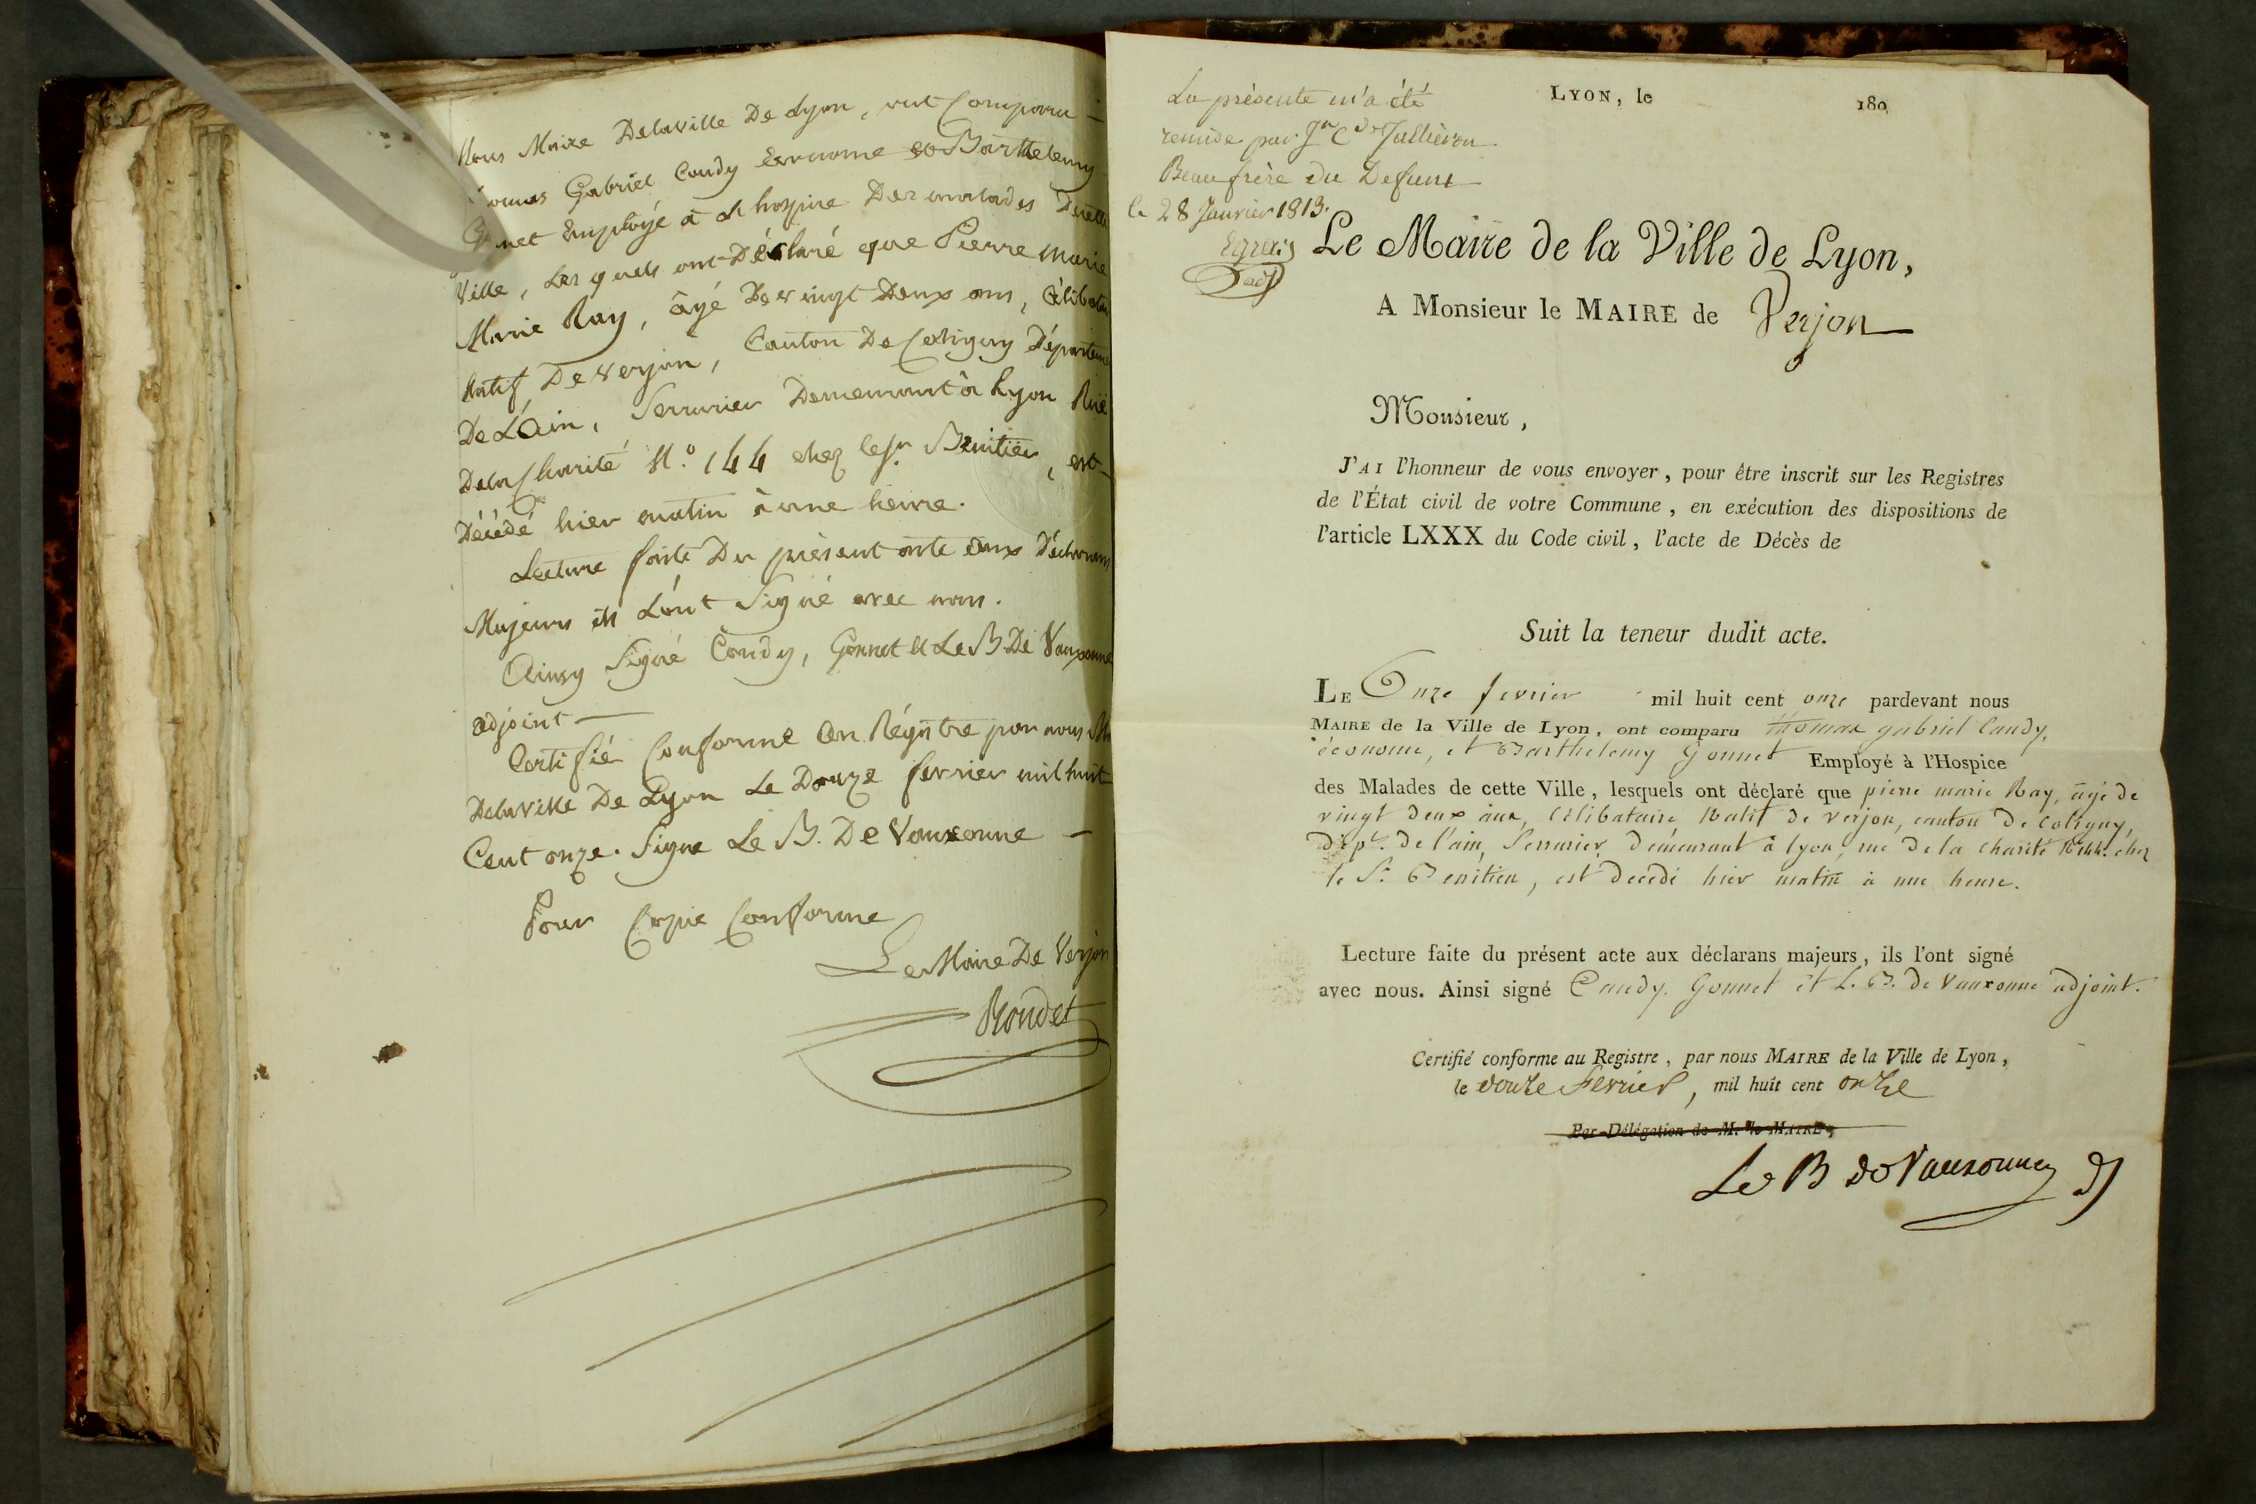 Nous Maire Delaville De Lyon, ont Comparu
Gabriel Candy Econome et Barthelemy
employé à L'hospice Des malades De cette
Ville, Les quels ont Déclaré que Pierre Marie
Marie Ray, âgé De vingt Deux ans, Célibataire
Natif De Verjon, Canton De Coligny Département
De L'Ain, Serrurier Demeurant à Lyon Rüe
Dela Charité N.º 144 chez le Sr. Benitier, est
Décédé hier matin à une heure.
Lecture faite Du présent acte aux Déclarans
Majeurs ils L'ont Signé avec nous.
Ainsy Signé Candy, Gonnet et Le B. De Vauxonne
adjoint
Certifié Conforme au Régitre par nous
Delaville De Lyon Le Douze fevrier mil huit
Cent onze. Signé Le B. De Vauxonne
Pour Copie Conforme
Le Maire De Verjon
Rondet
La présente m'a été
remise par Jn Cde Jullieron
Beau frère du Defunt
le 28 Janvier 1813.
LYON, le 180
Le Maire de la Ville de Lyon,
A Monsieur le MAIRE de Verjon
Monsieur,
J'AI l'honneur de vous envoyer, pour être inscrit sur les Registres
de l'État civil de votre Commune, en exécution des dispositions de
l'article LXXX du Code civil, l'acte de Décès de
Suit la teneur dudit acte.
LE Onze fevrier mil huit cent onze pardevant nous
MAIRE de la Ville de Lyon, ont comparu thomas gabriel Candy,
économe, et Barthelemy Gonnet Employé à l'Hospice
des Malades de cette Ville, lesquels ont déclaré que pierre marie Ray, âgé de
vingt deux ans, Célibataire Natif de verjon, canton de Coligny,
Dépt. de l'ain, Serrurier, demeurant à lyon, rue de la charité N.º 144. chez
le Sr. Benitier, est décédé hier matin à une heure.
Lecture faite du présent acte aux déclarans majeurs, ils l'ont signé
avec nous. Ainsi signé Candy. Gonnet et L. B. de Vauxonne adjoint.
Certifié conforme au Registre, par nous MAIRE de la Ville de Lyon,
le douze Fevrier, mil huit cent onze
Par Délégation de M. le MAIRE,
Le B de Vauxonne